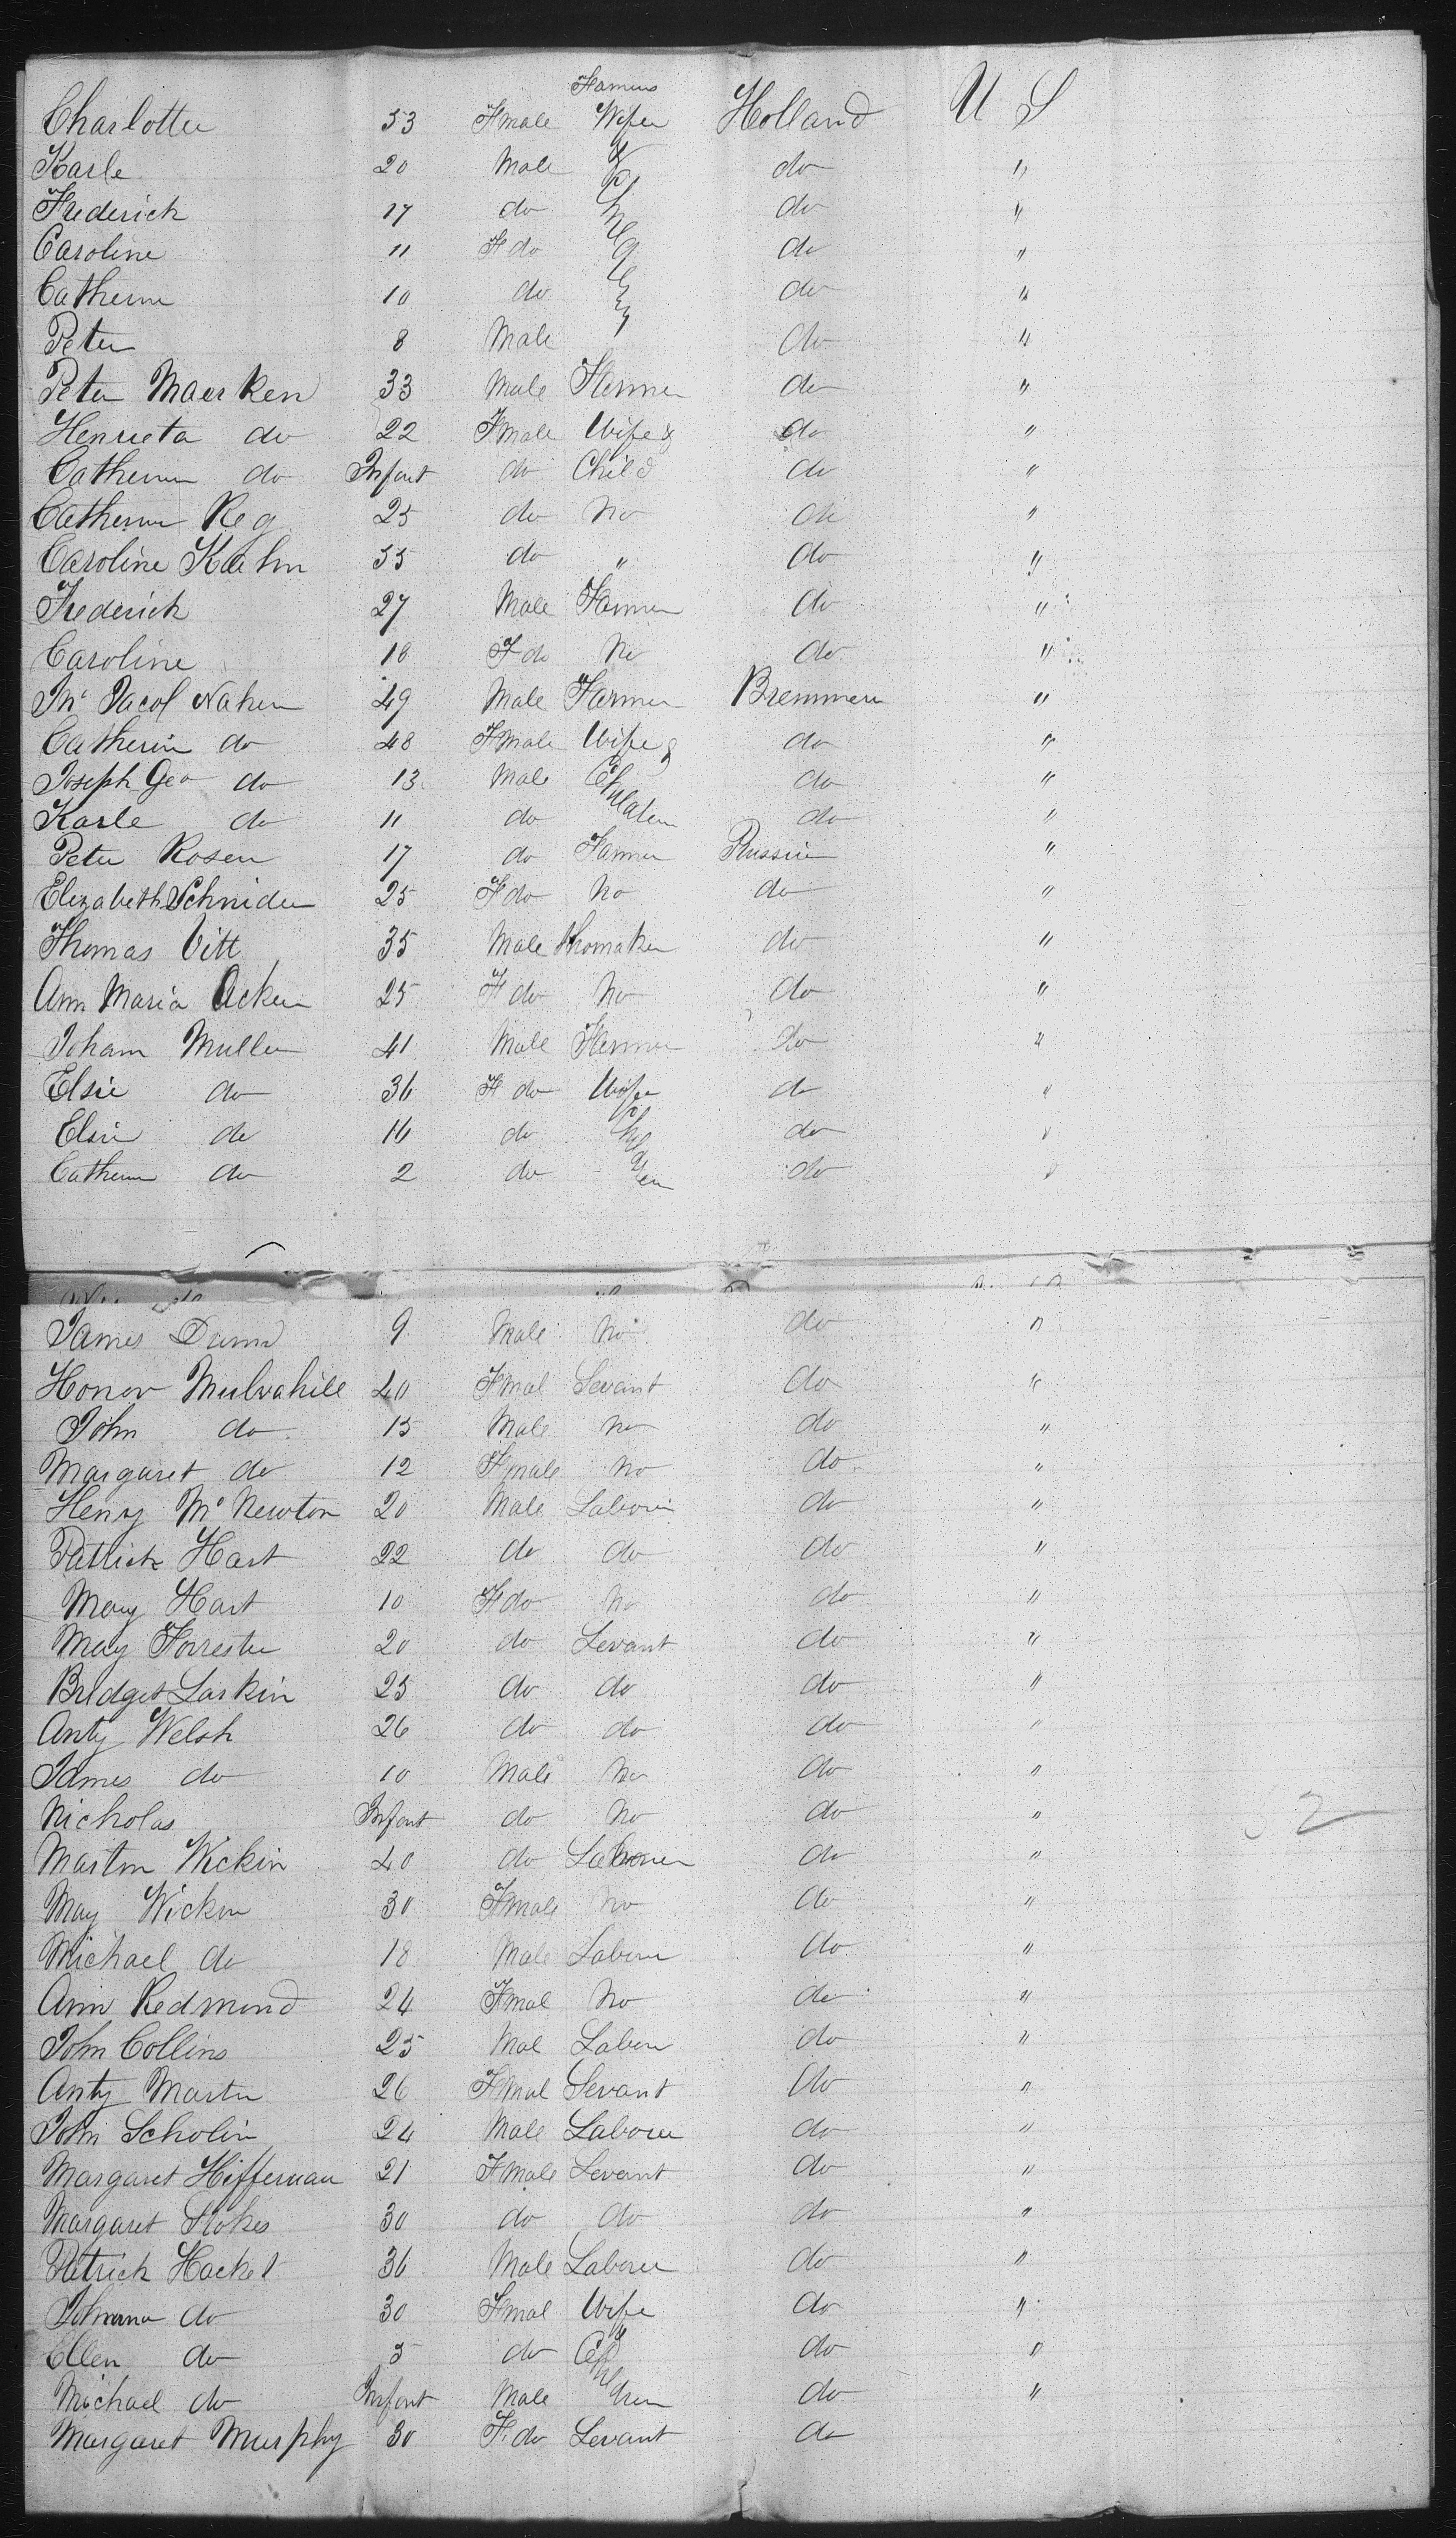 Charlotte 53 Fmale Farmers Wife Holland U S
Karle 20 Male & do "
Frederick 17 do Children do "
Caroline 11 F do do "
Catherine 10 do do "
Peter 8 Male do "
Peter Maerken 33 Male Farmer do "
Henrieta do 22 Fmale Wife & do "
Catherine do Infant do Child do "
Catherine Reg 25 do No do "
Caroline Kaehn 55 do " do "
Frederick 27 Male Farmer do "
Caroline 18 F do No do "
Jacol Naken 49 Male Farmer Bremmen "
Catherin do 48 Fmale Wife & do "
Joseph Geo do 13 Male Children do "
Karle do 11 do do "
Peter Rosen 17 do Farmer Prussia "
Elizabeth Schnider 25 F do No do "
Thomas Vitt 35 Male Shomaker do "
Ann Maria Acker 25 F do No do "
Joham Muller 41 Male Farmer do "
Elsie do 36 F do Wife do "
Elsie do 16 do Children do "
Catherine do 2 do do "
James Drum 9 Male No do "
Honor Mulvahill 40 Fmal Sevant do "
John do 15 Male no do "
Margaret do 12 Fmale No do "
Henry Mc Newton 20 Male Laborer do "
Patrick Hart 22 do do do "
Mary Hart 10 F do No do "
Mary Forrester 20 do Sevant do "
Bridget Larkin 25 do do do "
Anty Welsh 26 do do do "
James do 10 Male No do "
Nicholas Infant do No do "
2
Martin Wickin 40 do Laborer do "
Mary Wickin 30 Fmale No do "
Michael do 18 Male Laborer do "
Ann Redmond 24 Fmal No do "
John Collins 25 Mal Laborer do "
Anty Martin 26 Fmal Sevant do "
John Scholin 24 Male Laborer do "
Margaret Hiffernan 21 Fmale Sevant do "
Margaret Stokes 30 do do do "
Patrick Hacket 36 Male Laborer do "
Johanna do 30 Fmal Wife & do "
Ellen do 3 do Children do "
Michael do Infant Male do "
Margaret Murphy 30 F do Sevant do